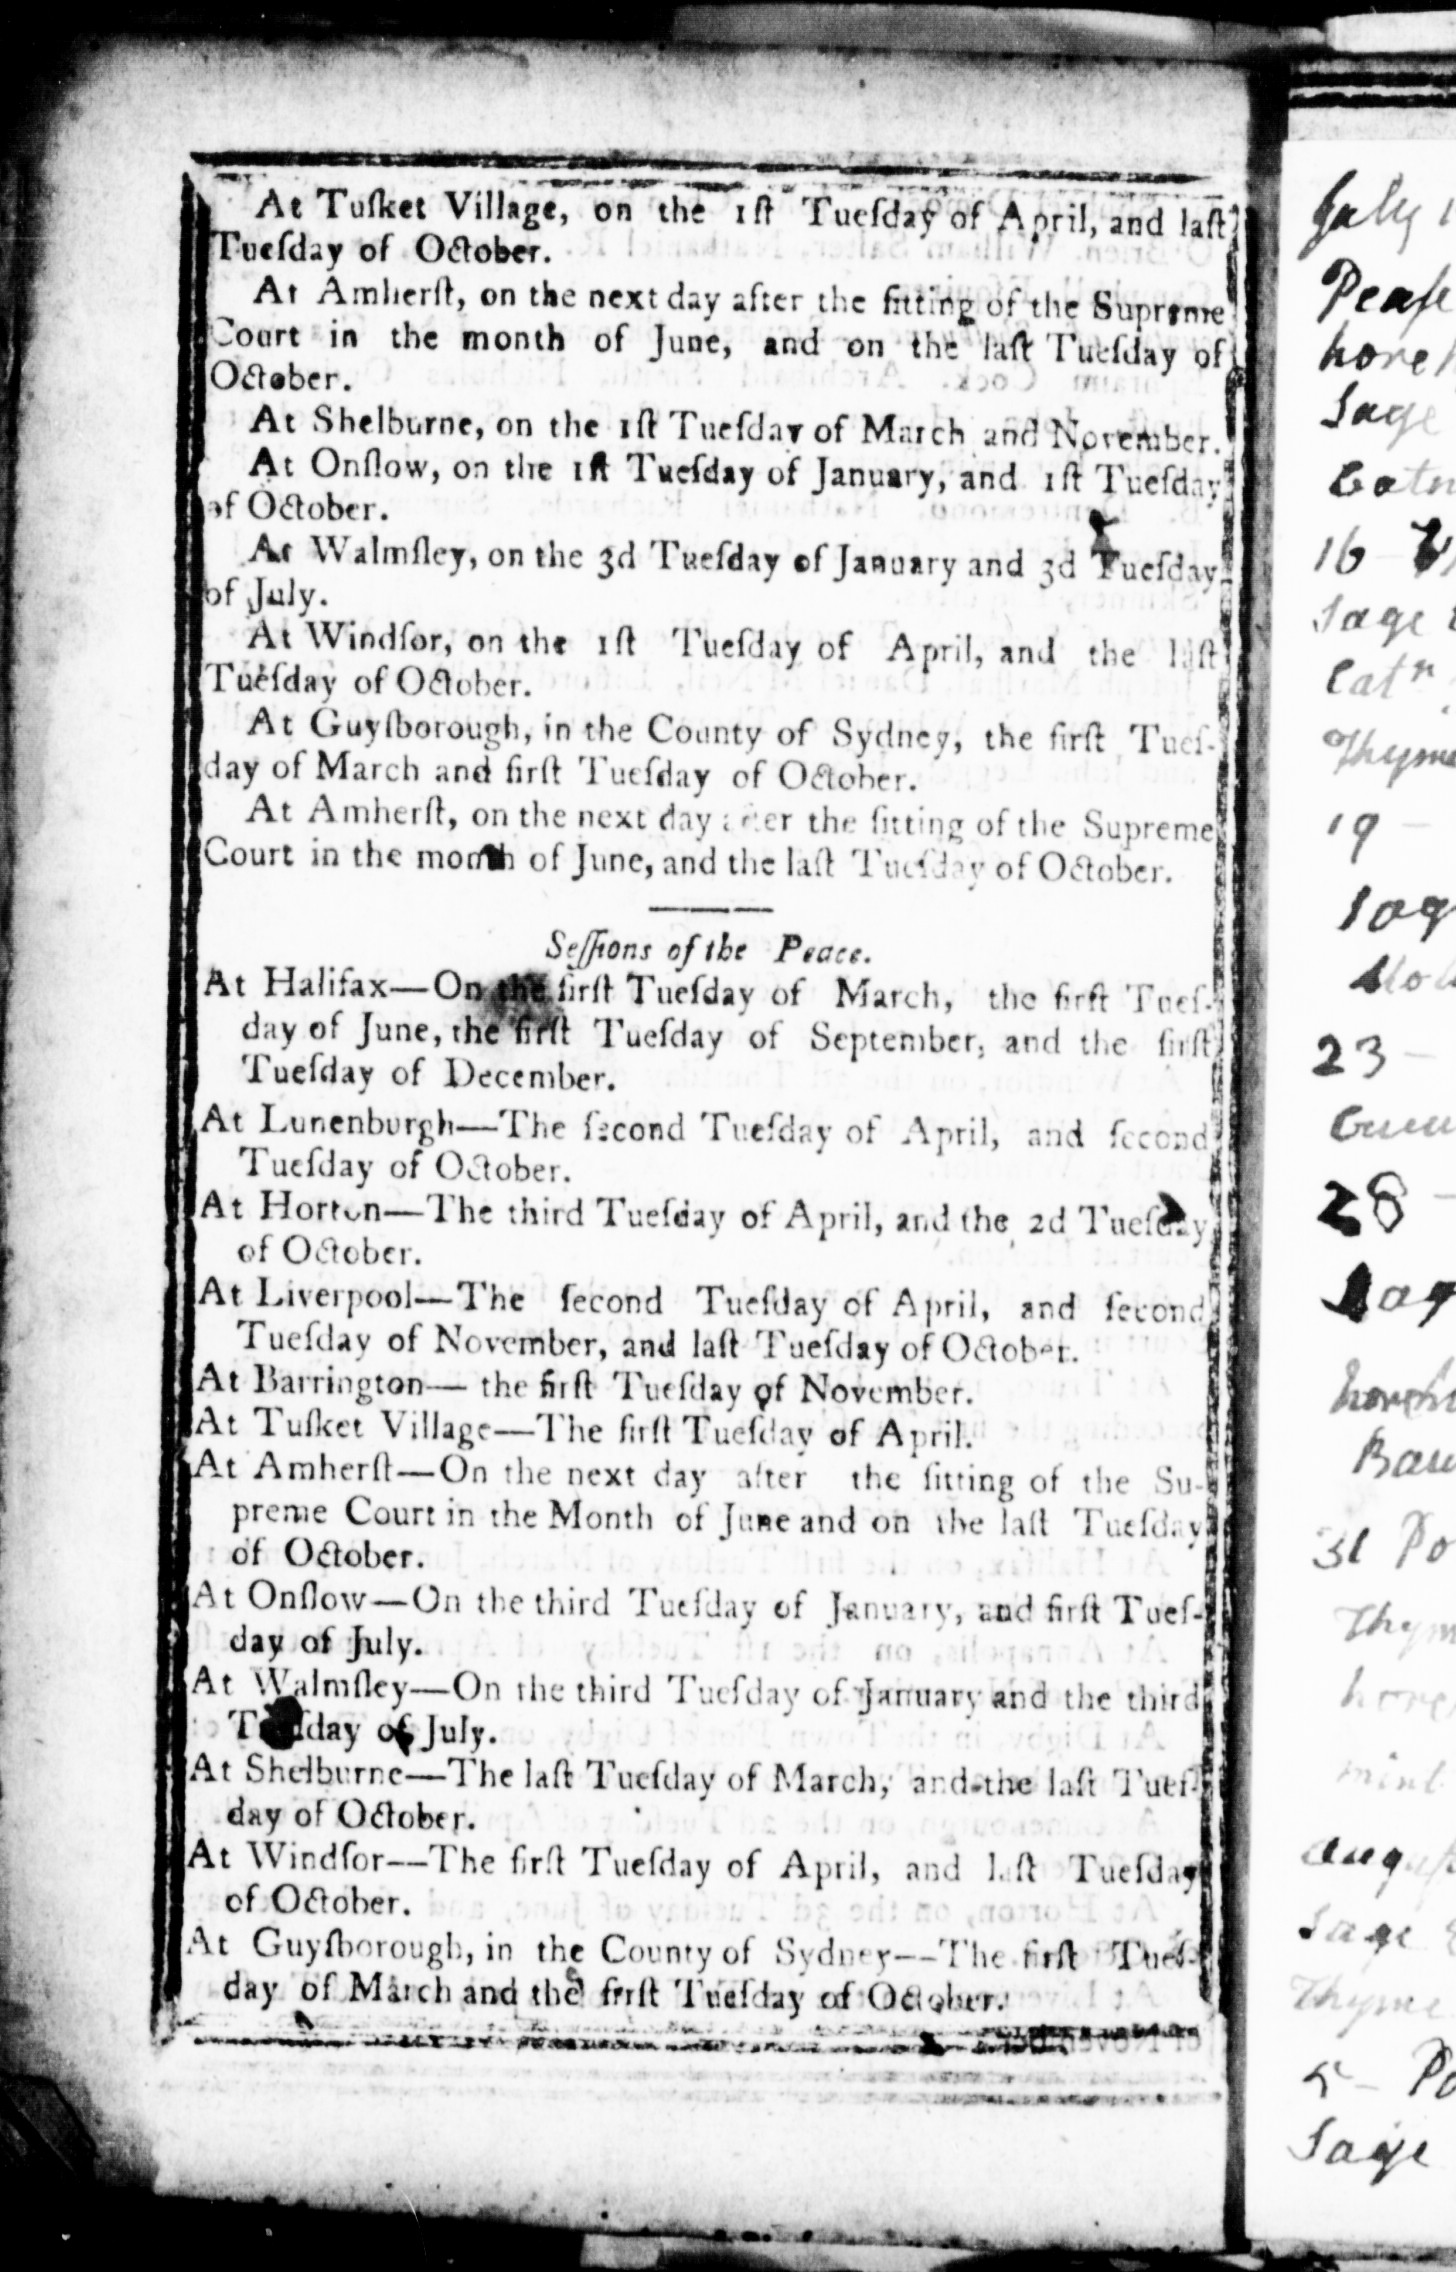 At Tuſket Village, on the 1ſt Tueſday of April, and laſt
Tueſday of October.
At Amherſt, on the next day after the ſitting of the Supreme
Court in the month of June, and on the laſt Tueſday of
October.
At Shelburne, on the 1ſt Tueſday of March and November.
At Onſlow, on the 1ſt Tueſday of January, and 1ſt Tueſday
of October.
At Walmſley, on the 3d Tueſday of January and 3d Tueſday
of July.
At Windſor, on the 1ſt Tueſday of April, and the laſt
Tueſday of October.
At Guyſborough, in the County of Sydney, the firſt Tueſ-
day of March and firſt Tueſday of October.
At Amherſt, on the next day after the ſitting of the Supreme
Court in the month of June, and the laſt Tueſday of October.
Seſſions of the Peace.
At Halifax—On the firſt Tueſday of March, the firſt Tueſ-
day of June, the firſt Tueſday of September, and the firſt
Tueſday of December.
At Lunenburgh—The ſecond Tueſday of April, and ſecond
Tueſday of October.
At Horton—The third Tueſday of April, and the 2d Tueſday
of October.
At Liverpool—The ſecond Tueſday of April, and ſecond
Tueſday of November, and laſt Tueſday of October.
At Barrington— the firſt Tueſday of November.
At Tuſket Village—The firſt Tueſday of April.
At Amherſt—On the next day after the ſitting of the Su-
preme Court in the Month of June and on the laſt Tueſday
of October.
At Onſlow—On the third Tueſday of January, and firſt Tueſ-
day of July.
At Walmſley—On the third Tueſday of January and the third
Tueſday of July.
At Shelburne—The laſt Tueſday of March, and the laſt Tueſ-
day of October.
At Windſor—The firſt Tueſday of April, and laſt Tueſday
of October.
At Guyſborough, in the County of Sydney—The firſt Tueſ-
day of March and the firſt Tueſday of October.
July
Peaſe
Sage
16
Sage
Catn
Thyme
19
23
28
31
Sage
5
Sage